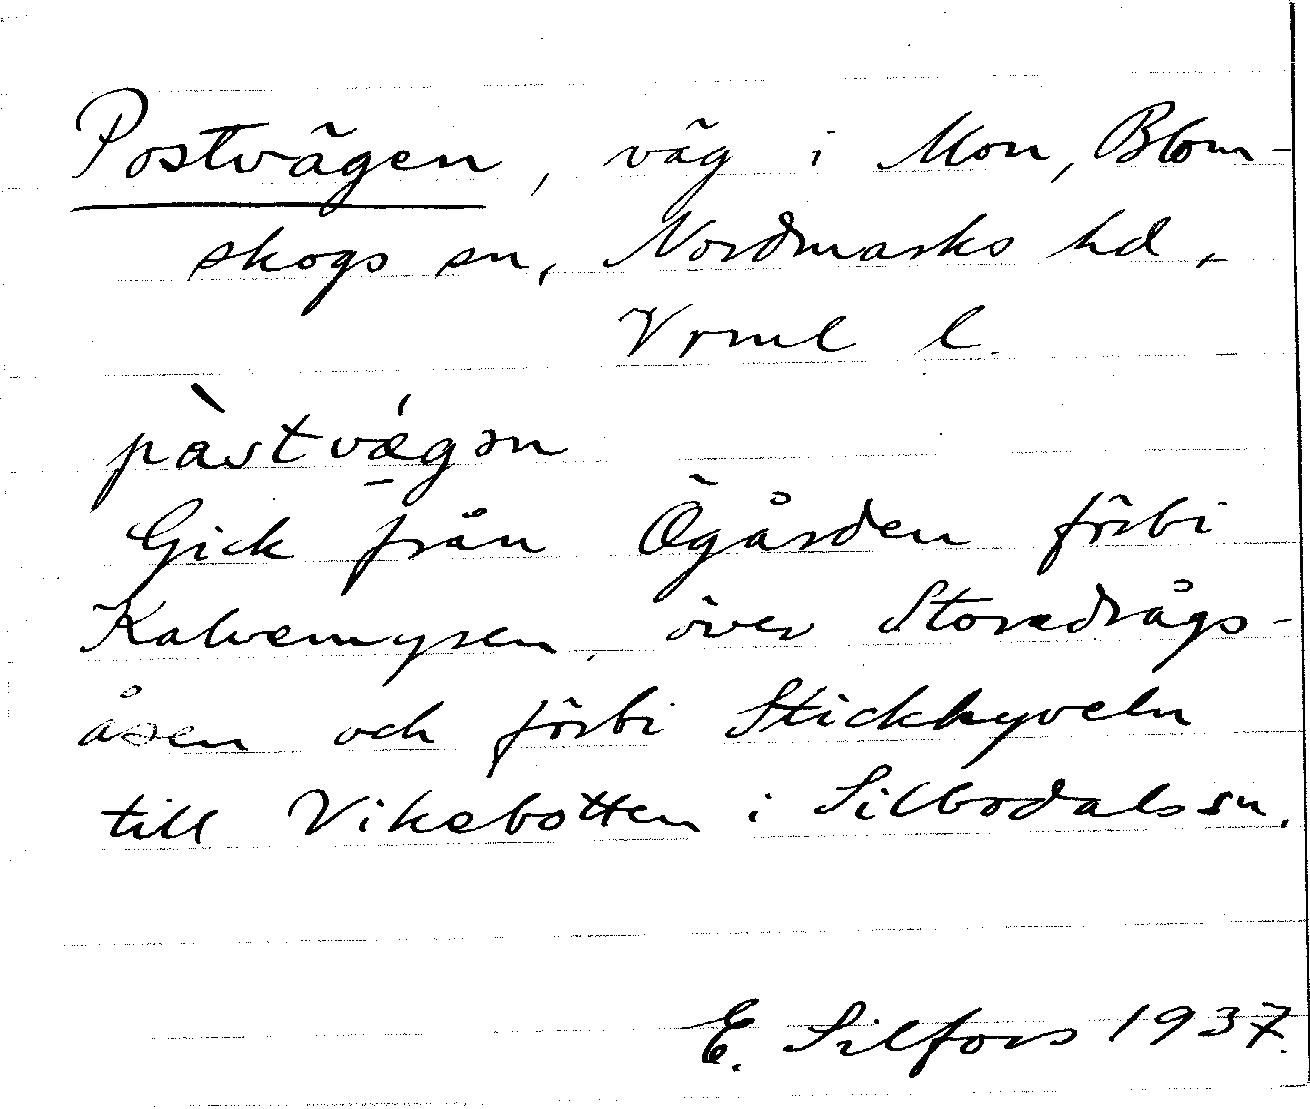 Postvägen, väg i Mon, Blom-
skogs sn, Nordmarks hd,
Vrml l.
pàstvǽgən
Gick från Ögården förbi
Kalvemyren, över Storedrågs-
åsen och förbi Stickkyveln
till Vikebotten i Silbodals sn.
E. Silfors 1937.